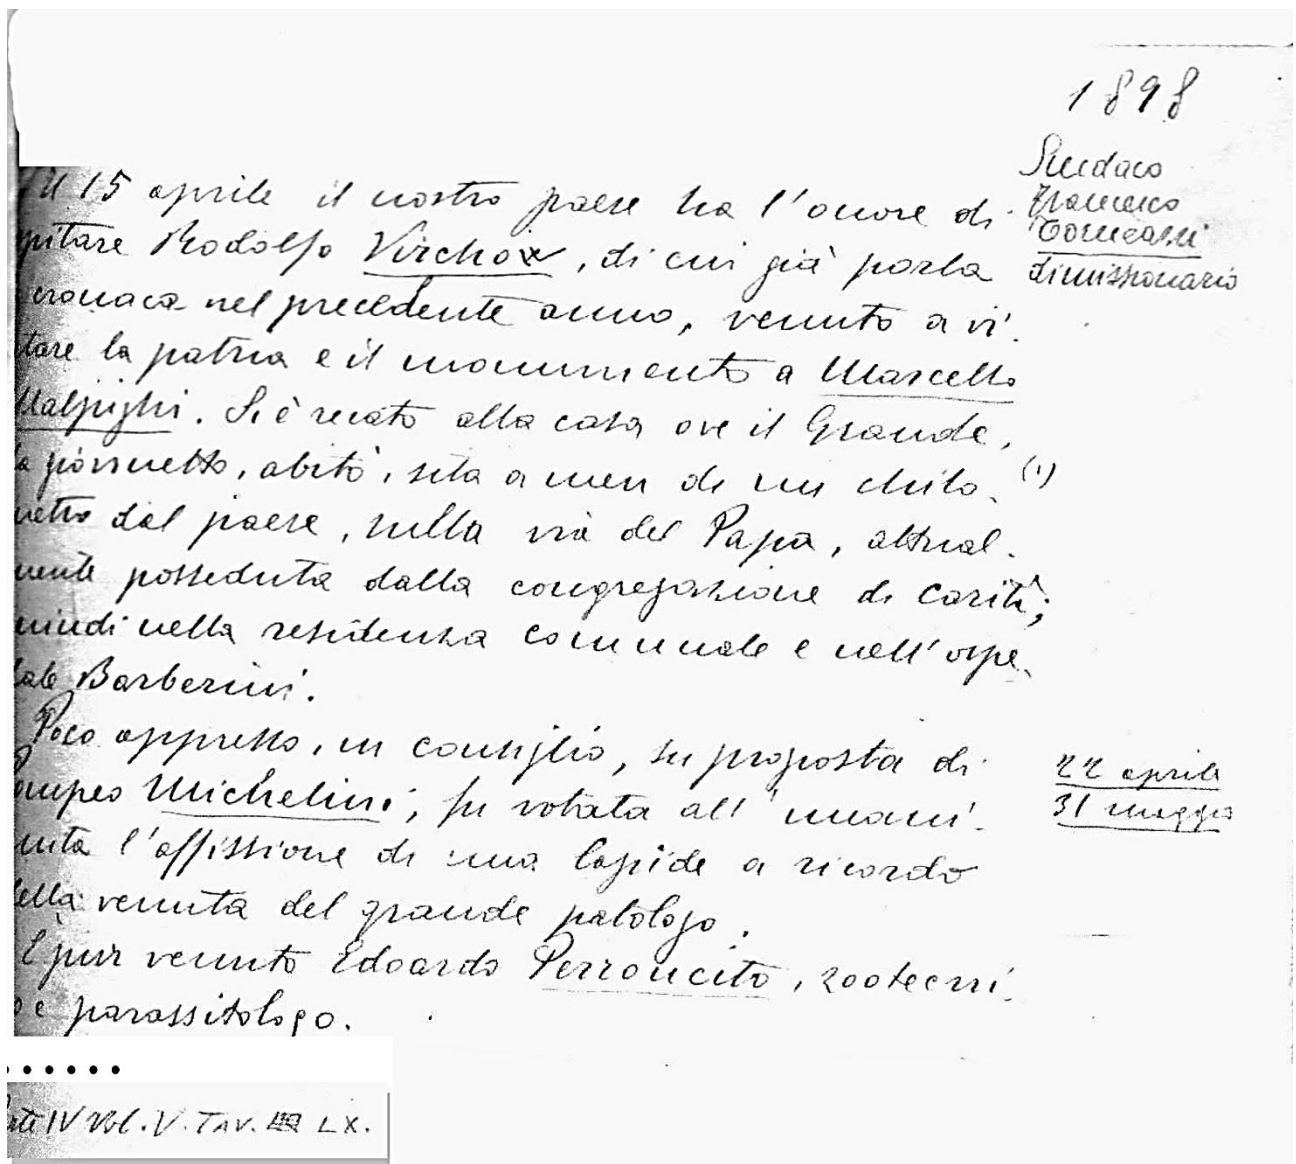 1898
Sindaco
Francesco
Tomeassi
dimissionario
Il 15 aprile il nostro paese ha l'onore di
pitare Rodolfo Virchow, di cui già parla
cronaca nel precedente anno, venuto a vi-
tare la patria e il monumento a Marcello
Malpighi. Si è recato alla casa ove il Grande,
giovinetto, abitò, sita a men di un chilo- (1)
metro dal paese, sulla via del Papa, attual-
mente posseduta dalla congregazione di Carità;
uindi nella residenza comunale e nell'ospe-
dale Barberini.
Poco appresso, in consiglio, su proposta di
ompeo Michelini, fu votata all'unani-
mità l'affissione di una lapide a ricordo
della venuta del grande patologo.
22 aprile
31 maggio
È pur venuto Edoardo Perroncito, zootecni-
o e parassitologo.
......
IV Vol. V. TAV. LX.